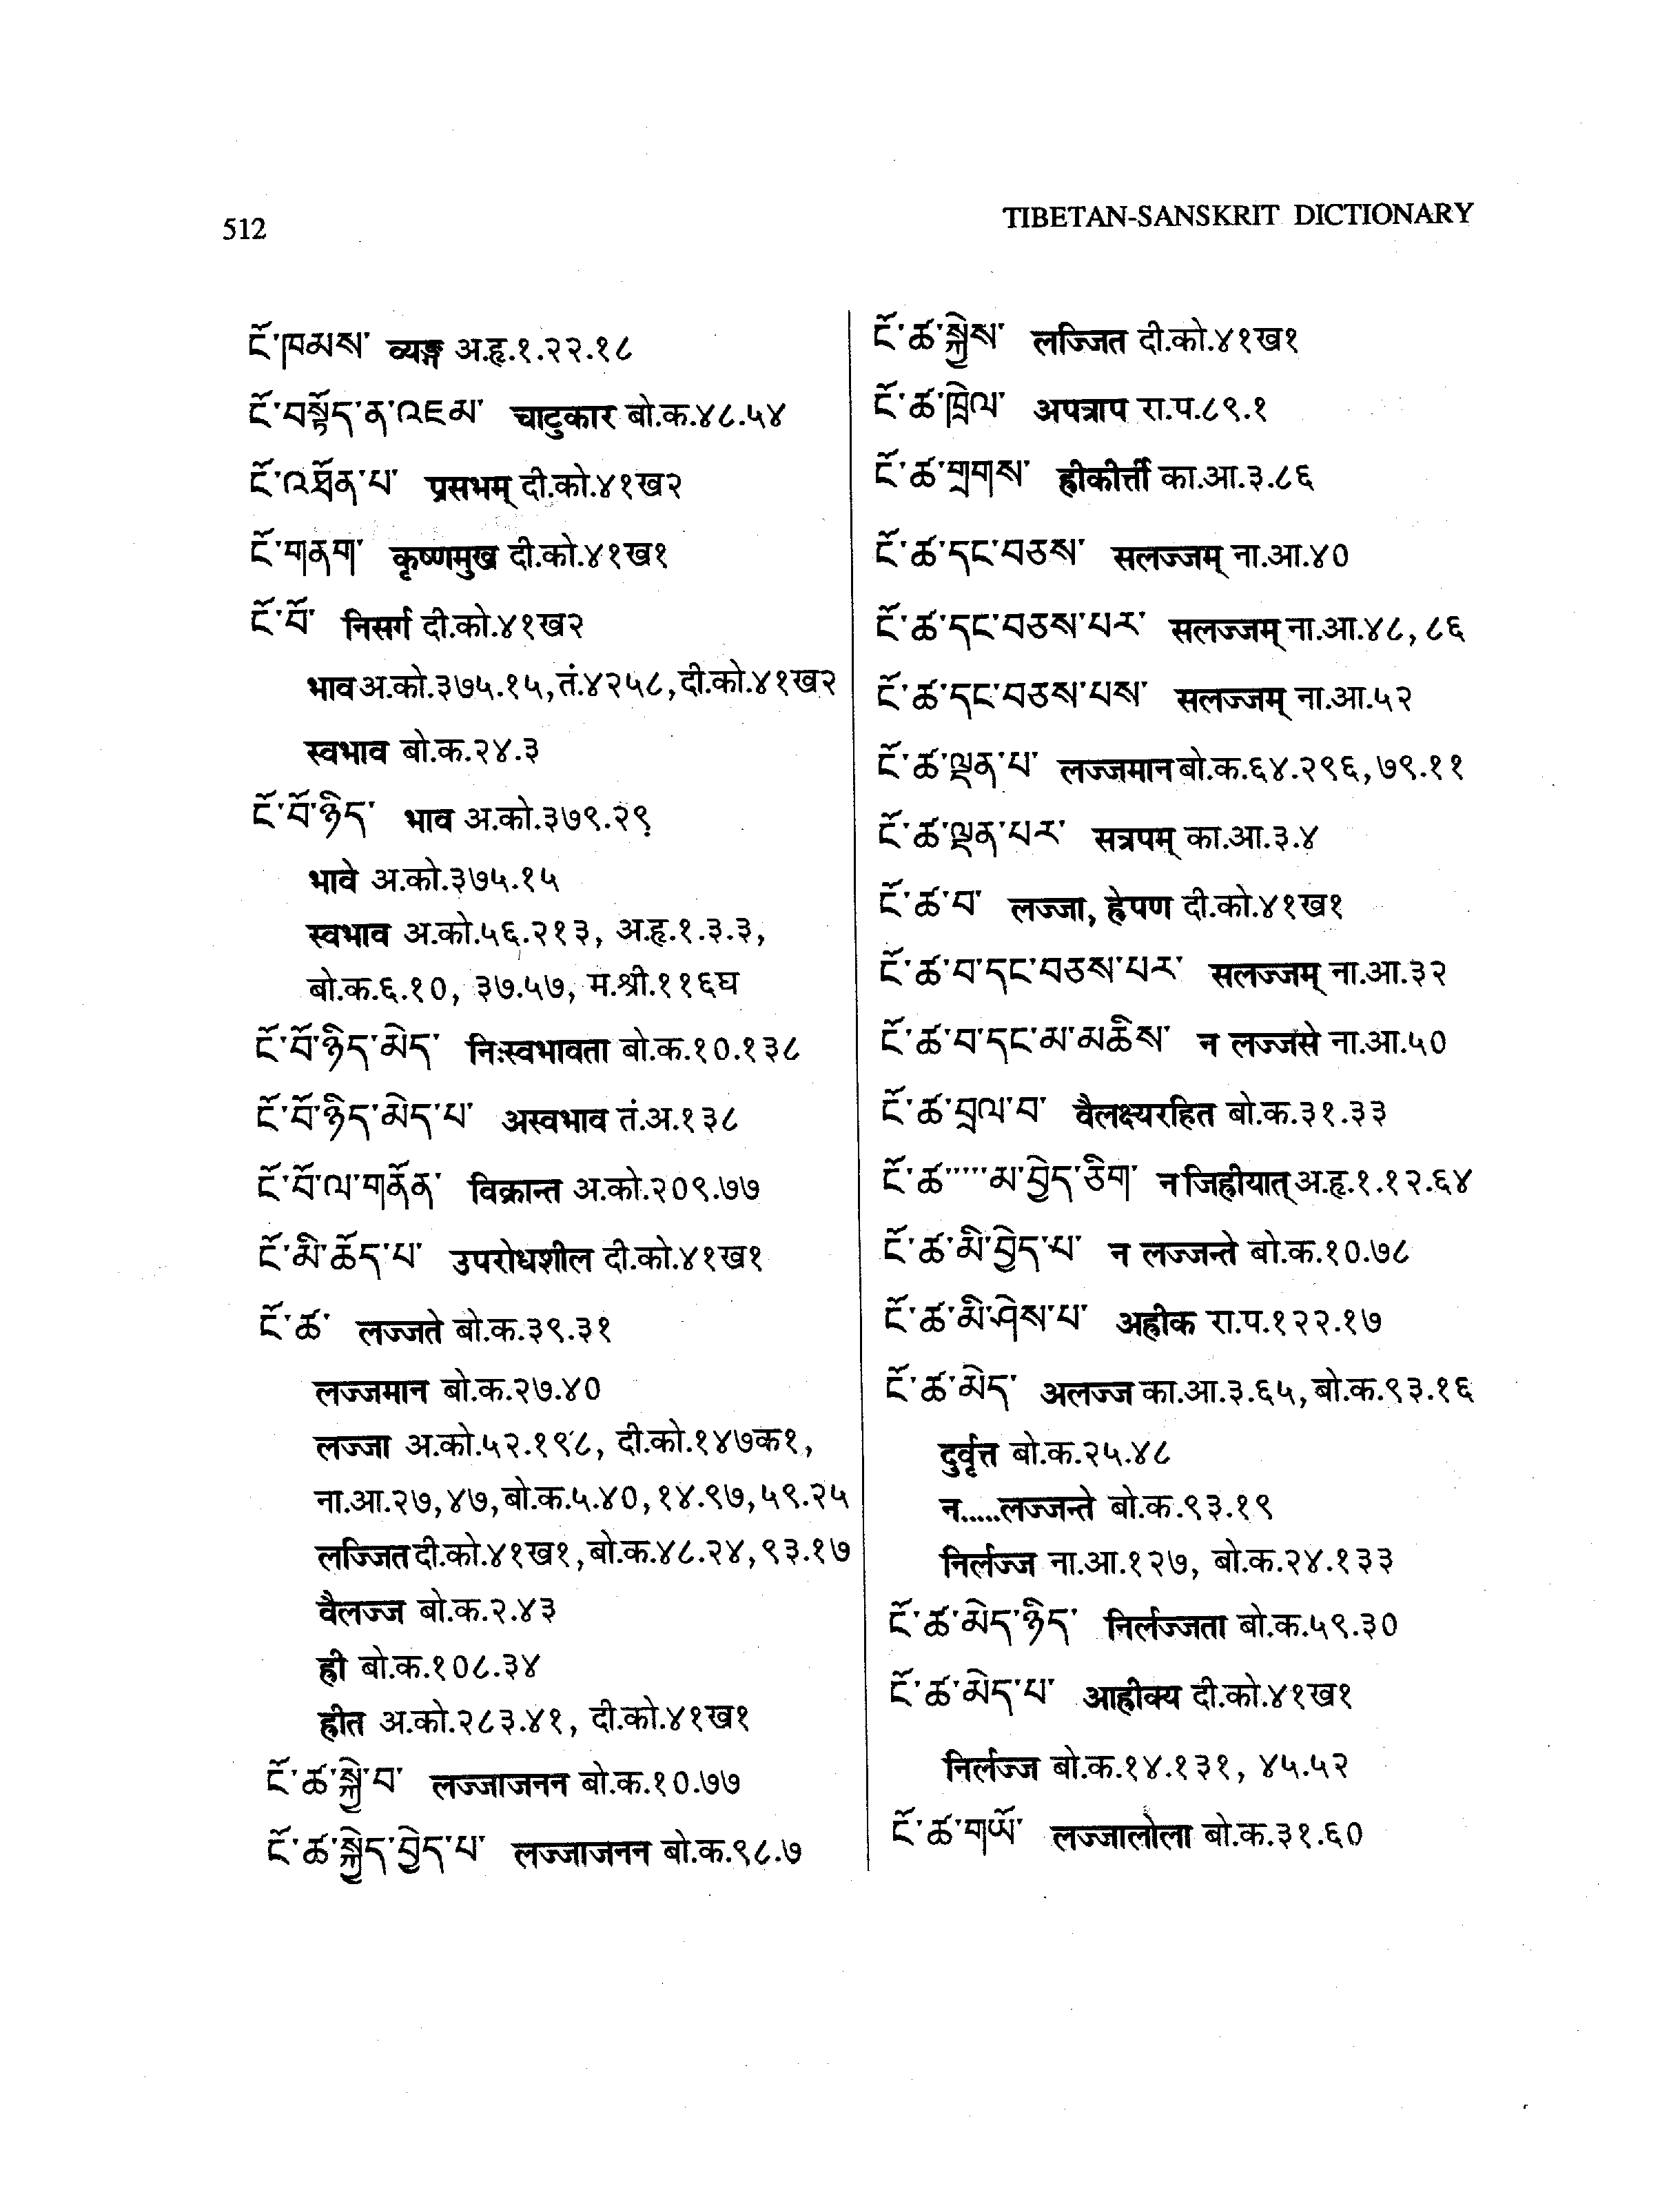 512
TIBETAN-SANSKRIT DICTIONARY
ངོ་ཁམས་ व्यङ्ग अ.हृ.१.२२.१८
ངོ་བསྟོད་ན་འཇམ་ चाटुकार बो.क.४८.५४
ངོ་འཐོན་པ་ प्रसभम् दी.को.४१ख२
ངོ་གནག་ कृष्णमुख दी.को.४१ख१
ངོ་བོ་ निसर्ग दी.को.४१ख२
भाव अ.को.३७५.१५, तं.४२५८, दी.को.४१ख२
स्वभाव बो.क.२४.३
ངོ་བོ་ཉིད་ भाव अ.को.३७९.२९
भावे अ.को.३७५.१५
स्वभाव अ.को.५६.२१३, अ.हृ.१.३.३,
बो.क.६.१०, ३७.५७, म.श्री.११६घ
ངོ་བོ་ཉིད་མེད་ निःस्वभावता बो.क.१०.१३८
ངོ་བོ་ཉིད་མེད་པ་ अस्वभाव तं.अ.१३८
ངོ་བོ་ལ་གནོན་ विक्रान्त अ.को.२०९.७७
ངོ་མི་ཆོད་པ་ उपरोधशील दी.को.४१ख१
ངོ་ཚ་ लज्जते बो.क.३९.३१
लज्जमान बो.क.२७.४०
लज्जा अ.को.५२.१९८, दी.को.१४७क१,
ना.आ.२७, ४७, बो.क.५.४०, १४.९७, ५९.२५
लज्जित दी.को.४१ख१, बो.क.४८.२४, ९३.१७
वैलज्ज बो.क.२.४३
ह्री बो.क.१०८.३४
ह्रीत अ.को.२८३.४१, दी.को.४१ख१
ངོ་ཚ་སྐྱེ་བ་ लज्जाजनन बो.क.१०.७७
ངོ་ཚ་སྐྱེད་བྱེད་པ་ लज्जाजनन बो.क.९८.७
ངོ་ཚ་སྐྱེས་ लज्जित दी.को.४१ख१
ངོ་ཚ་ཁྲེལ་ अपत्राप रा.प.८९.१
ངོ་ཚ་གྲགས་ ह्रीकीर्त्ती का.आ.३.८६
ངོ་ཚ་དང་བཅས་ सलज्जम् ना.आ.४०
ངོ་ཚ་དང་བཅས་པར་ सलज्जम् ना.आ.४८, ८६
ངོ་ཚ་དང་བཅས་པས་ सलज्जम् ना.आ.५२
ངོ་ཚ་ལྡན་པ་ लज्जमान बो.क.६४.२९६, ७९.११
ངོ་ཚ་ལྡན་པར་ सत्रपम् का.आ.३.४
ངོ་ཚ་བ་ लज्जा, ह्रेपण दी.को.४१ख१
ངོ་ཚ་བ་དང་བཅས་པར་ सलज्जम् ना.आ.३२
ངོ་ཚ་བ་དང་མ་མཆིས་ न लज्जसे ना.आ.५०
ངོ་ཚ་བྲལ་བ་ वैलक्ष्यरहित बो.क.३१.३३
ངོ་ཚ་་་་་་མ་བྱེད་ཅིག་ न जिह्रीयात् अ.हृ.१.१२.६४
ངོ་ཚ་མི་བྱེད་པ་ न लज्जन्ते बो.क.१०.७८
ངོ་ཚ་མི་ཤེས་པ་ अह्रीक रा.प.१२२.१७
ངོ་ཚ་མེད་ अलज्ज का.आ.३.६५, बो.क.९३.१६
दुर्वृत्त बो.क.२५.४८
न.....लज्जन्ते बो.क.९३.१९
निर्लज्ज ना.आ.१२७, बो.क.२४.१३३
ངོ་ཚ་མེད་ཉིད་ निर्लज्जता बो.क.५९.३०
ངོ་ཚ་མེད་པ་ आह्रीक्य दी.को.४१ख१
निर्लज्ज बो.क.१४.१३१, ४५.५२
ངོ་ཚ་གཡོ་ लज्जालोला बो.क.३१.६०